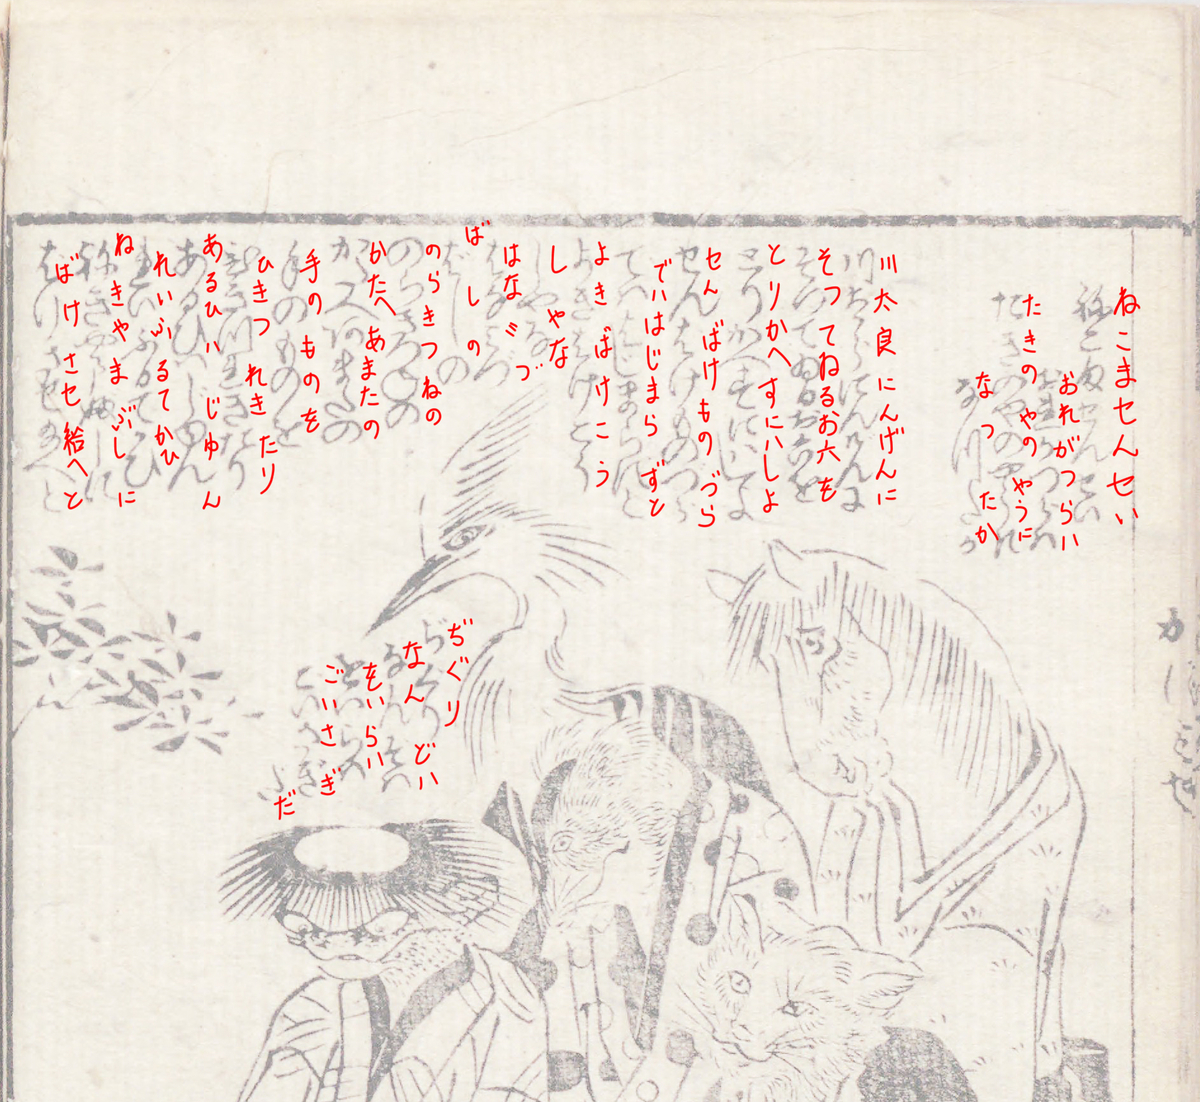 ねこまセんセい
おれがつらハ
たきのやのやうに
なつたか
川太良にんげんに
そつてねるお六を
とりかへすにハしよ
セんばけものつづら
でハはじまらずと
よきばけこう
しやな
はなミづ
ばしの
のらきつねの
かたへあまたの
手のものを
ひきつれきたり
あるひハじゆん
れいふるてかひ
ねきやまぶしに
ばけさセ給へと
ぢぐり
なんどハ
をいらハ
ごいさぎ
だ